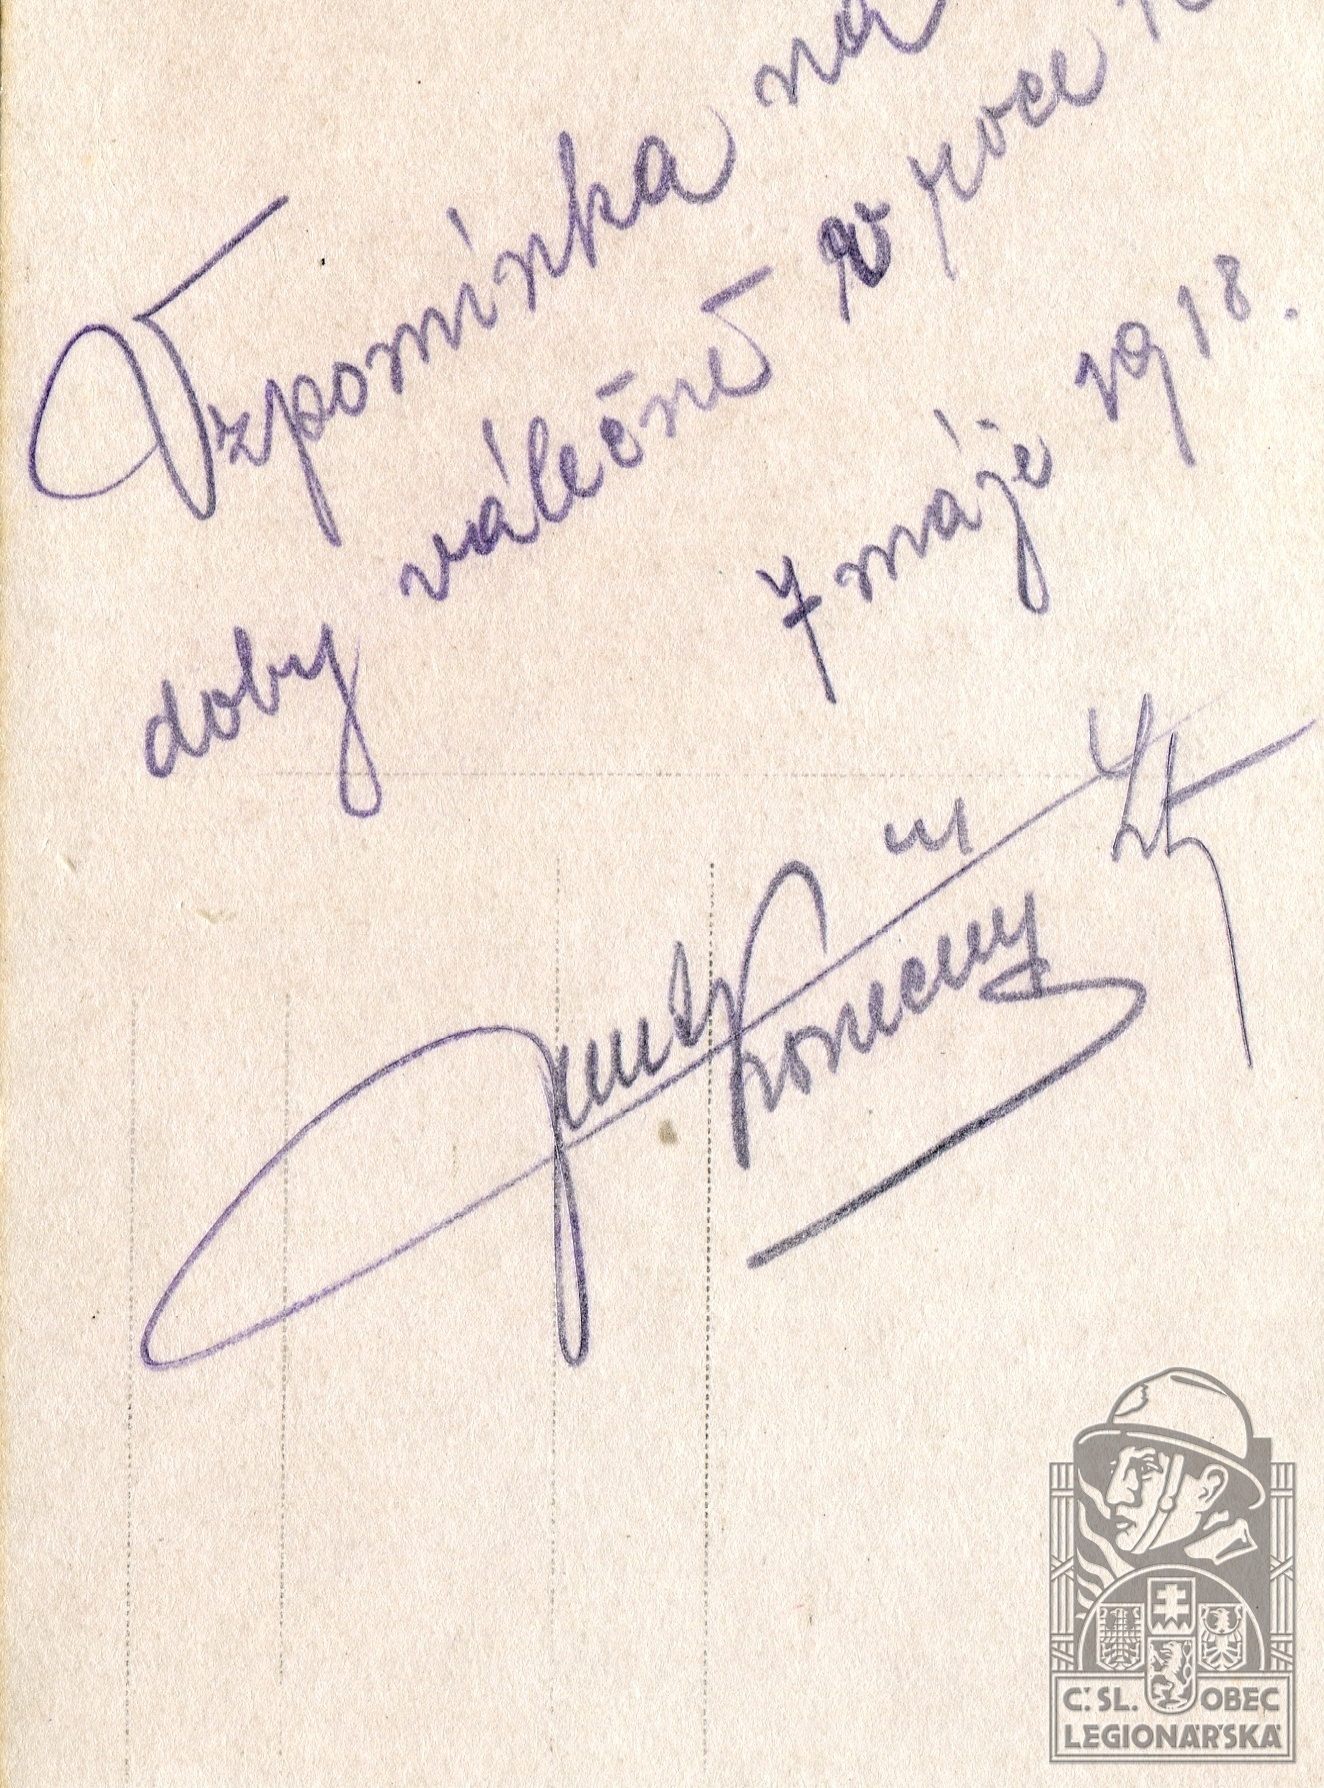 Vzpomínka na
doby válečné v roce
7 máje 1918.
Konečný
Č. SL. OBEC
LEGIONÁŘSKÁ